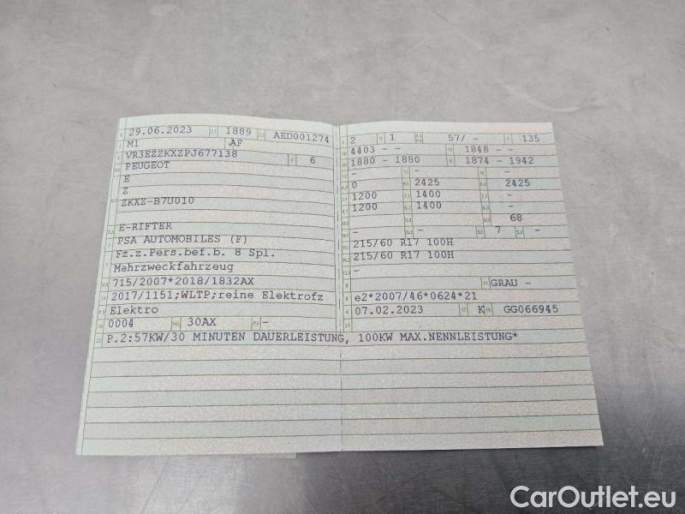 29.06.2023 1889 AED001274
M1 AF
VR3EZZKXZPJ677138 6
PEUGEOT
E
Z
ZKXZ-B7U010
E-RIFTER
PSA AUTOMOBILES (F)
Fz.z.Pers.bef.b. 8 Spl.
Mehrzweckfahrzeug
715/2007*2018/1832AX
2017/1151;WLTP;reine Elektrofz
Elektro
0004 30AX -
P.2:57KW/30 MINUTEN DAUERLEISTUNG, 100KW MAX.NENNLEISTUNG*
2 1 57/ - 135
4403 - - 1848 - -
1880 - 1880 1874 - 1942
- - -
0 2425 2425
1200 1400 -
1200 1400 -
- 68
- - 7 -
215/60 R17 100H
215/60 R17 100H
-
GRAU -
e2*2007/46*0624*21
07.02.2023 K GG066945
CarOutlet.eu